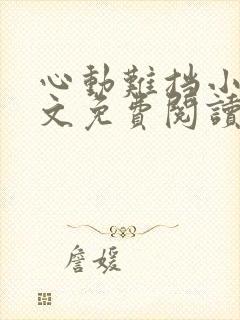 心動難挡小
文免費閱讀
詹媛